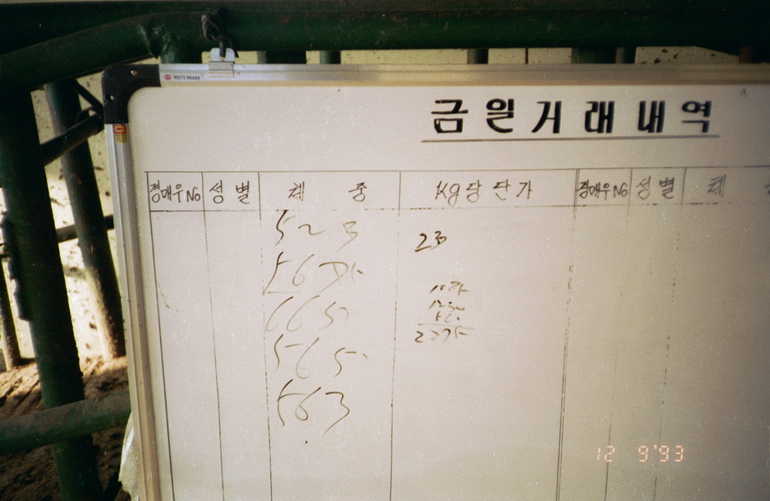 금일거래내역
경매우No 성별 체 중 Kg당단가 경매우No 성별 체
523 23
665
565
563
12 9'93